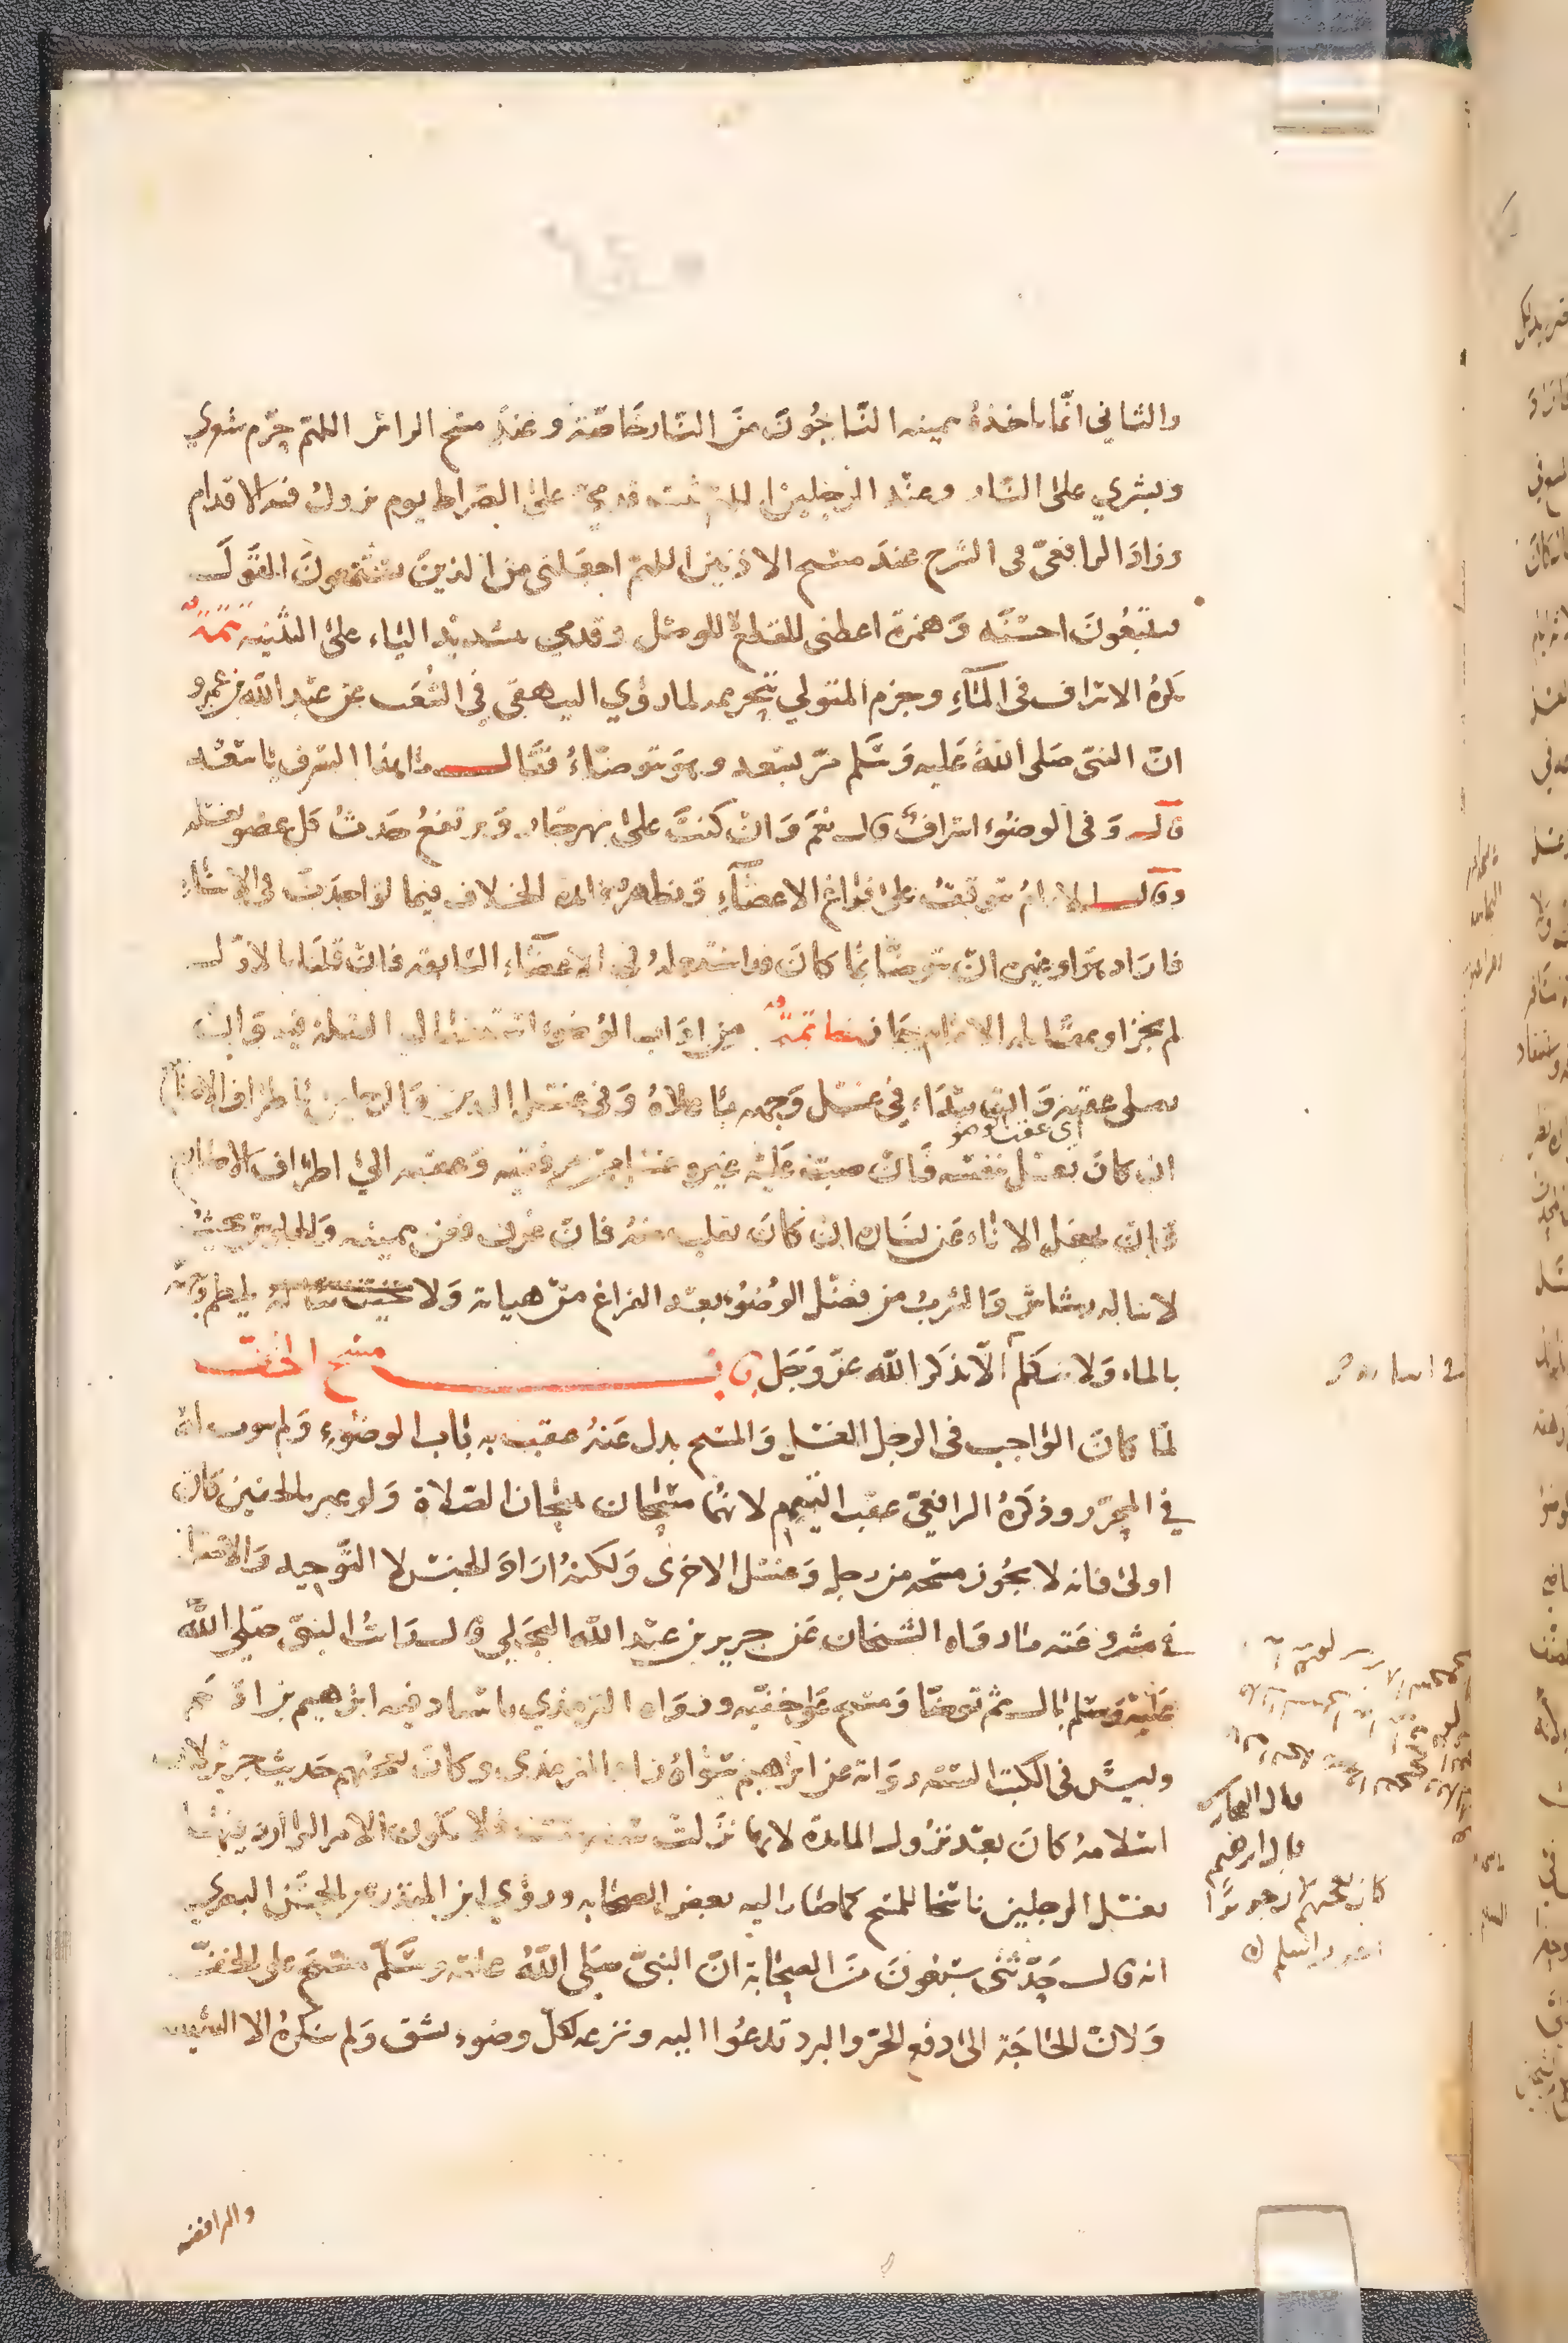 والثاني انما ياخذه بيمينه الناجون من النار خاصة وعند مسح الراس اللهم حرم شعري
وبشري على النار وعند الرجلين اللهم ثبت قدمي على الصراط يوم تزول فيه الاقدام
وزاد الرافعي في الشرح عند مسح الاذنين اللهم اجعلني من الذين يستمعون القول
فيتبعون احسنه وهمزة اعطني للقطع لا للوصل وقدمي بتشديد الياء على التثنية تتمة
يكره الاسراف في الماء وجزم المتولي بتحريمه لما روي البيهقي في الشعب عن عبد الله بن عمرو
ان النبي صلى الله عليه وسلم مر بسعد وهو يتوضاء فقال ما هذا السرف يا سعد
قال وفي الوضوء اسراف قال نعم وان كنت على نهر جار ويرتفع حدث كل عضو بغسله
وقال الامام يتوقف على فراغ الاعضاء وتظهر فائدة الخلاف فيما لو احدث في الاثناء
فاراد هو او غيره ان يتوضا بما كان قد استعمله في الاعضاء السابقة فان قلنا بالاول
لم يجز او بمقاله الامام جاز خاتمة من اداب الوضوء استقبال القبلة فيه وان
يصلي عقبه والابتداء في غسل وجهه باعلاه وفي غسل اليدين والرجلين باطراف الاصابع
اي عقب الوضو
ان كان يغسل نفسه فان صب عليه غيره غسل من مرفقيه وكعبيه الى اطراف الاصابع
وان يجعل الاناء عن يساره ان كان يقلب منه فان غرف فعن يمينه والجلوس بحيث
لا يناله رشاش والشرب من فضل الوضوء بعد الفراغ من هياته ولا يلطم وجهه
بالماء ولا يتكلم الا بذكر الله عز وجل باب مسح الخف
لما كان الواجب في الرجل الغسل والمسح بدل عنه عقب به باب الوضوء ولم يبوب له
في المحرر وذكره الرافعي عقب التيمم لانهما مسحان يبيحان الصلاة ولو عبر بالخفين كان
اولى فانه لا يجوز مسحه من رجل وغسل الاخرى ولكنه اراد الجنس لا التوحيد والاصل
في مشروعيته ما رواه الشيخان عن جرير بن عبد الله البجلي قال رايت النبي صلى الله
عليه وسلم بال ثم توضا ومسح على خفيه ورواه الترمذي باسناد فيه ابراهيم بن ادهم
وليس في الكتب الستة رواية عن ابراهيم سواه زاد الترمذي وكان يعجبهم حديث جرير لان
اسلامه كان بعد نزول المائدة لانها نزلت سنة ست فلا يكون الامر الوارد فيها
بغسل الرجلين ناسخا للمسح كما صار اليه بعض الصحابه وروي ابن المنذر عن الحسن البصري
انه قال حدثني سبعون من الصحابة ان النبي صلى الله عليه وسلم مسح على الخف
ولان الحاجة الى دفع الحر والبرد تدعوا اليه ونزعه لكل وضوء يشق ولم ينكره الا الشيعه
قال ابرهيم
كان يعجبهم
والرافضه